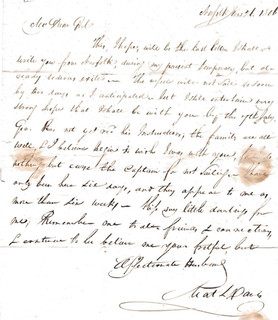 Norfolk
My Dear Girl
This, I hope, will be the last letter I shall
write you from Norfolk, during my present temporary, but al-
ready tedious exile. — The will not sail so soon
by ten days as I anticipated — but I still entertain very
strong hopes that I shall be with you by the
Geo. has not yet his Instructions; the family are all
well, & I believe begins to wish I was with you,
nothing but curse the Captain for not sailing — I have
only been here six days, and they appear to me as
more than six weeks — Kiss my little darlings for
me, Remember me to all friends & connections,
& continue to believe me your faithful, but
Affectionate Husband